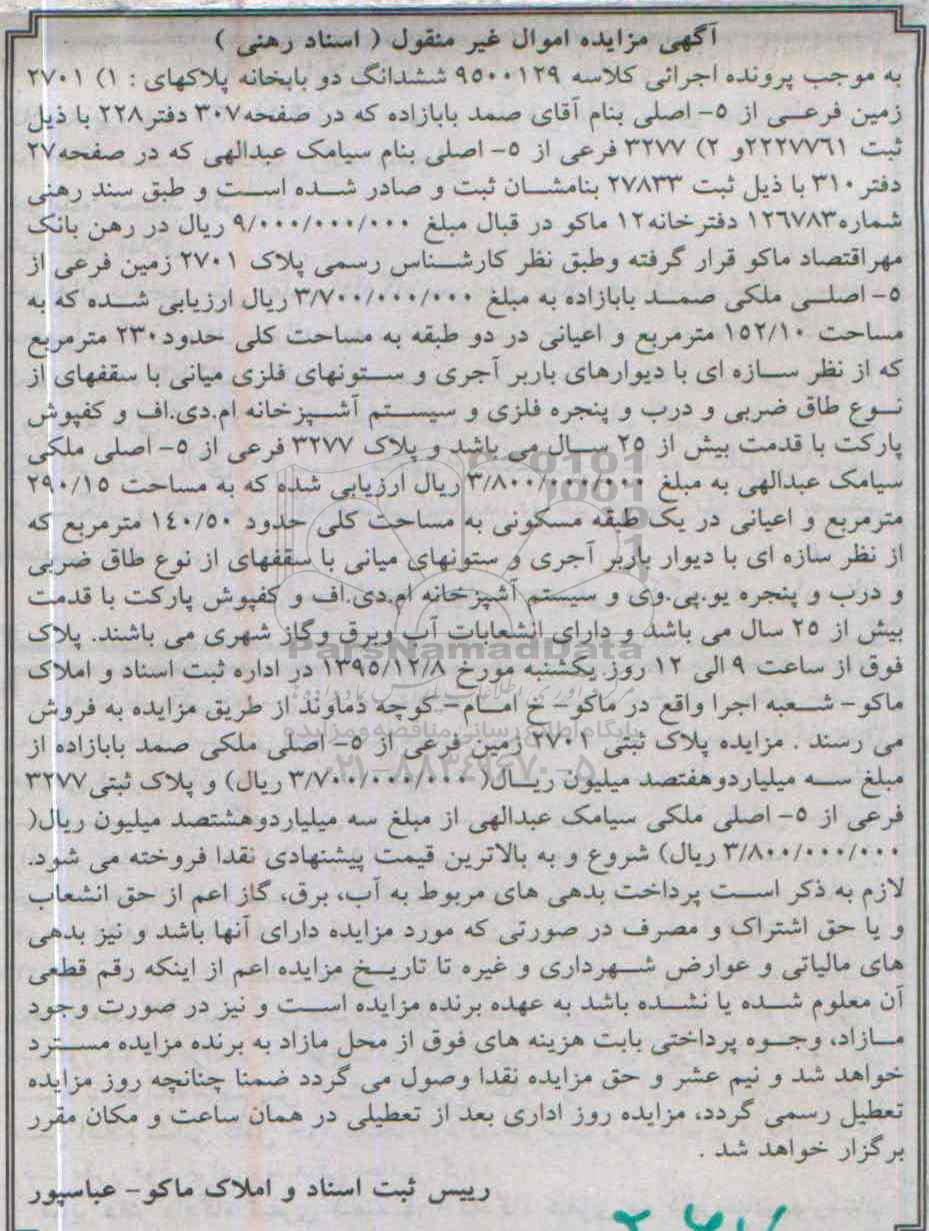 آگهی مزایده اموال غیر منقول ( اسناد رهنی )
به موجب پرونده اجرائی کلاسه ۹۵۰۰۱۲۹ ششدانگ دو بابخانه پلاکهای : ۱) ۲۷۰۱
زمین فرعی از ۵- اصلی بنام آقای صمد بابازاده که در صفحه۳۰۷ دفتر۲۲۸ با ذیل
ثبت ۲۲۲۷۷۶۱و ۲) ۳۲۷۷ فرعی از ۵- اصلی بنام سیامک عبدالهی که در صفحه۲۷
دفتر۳۱۰ با ذیل ثبت ۲۷۸۳۳ بنامشان ثبت و صادر شده است و طبق سند رهنی
شماره۱۲۶۷۸۳ دفترخانه۱۲ ماکو در قبال مبلغ ۹/۰۰۰/۰۰۰/۰۰۰ ریال در رهن بانک
مهراقتصاد ماکو قرار گرفته وطبق نظر کارشناس رسمی پلاک ۲۷۰۱ زمین فرعی از
۵- اصلی ملکی صمد بابازاده به مبلغ ۳/۷۰۰/۰۰۰/۰۰۰ ریال ارزیابی شده که به
مساحت ۱۵۲/۱۰ مترمربع و اعیانی در دو طبقه به مساحت کلی حدود۲۳۰ مترمربع
که از نظر سازه ای با دیوارهای باربر آجری و ستونهای فلزی میانی با سقفهای از
نوع طاق ضربی و درب و پنجره فلزی و سیستم آشپزخانه ام.دی.اف و کفپوش
پارکت با قدمت بیش از ۲۵ سال می باشد و پلاک ۳۲۷۷ فرعی از ۵- اصلی ملکی
سیامک عبدالهی به مبلغ ۳/۸۰۰/۰۰۰/۰۰۰ ریال ارزیابی شده که به مساحت ۲۹۰/۱۵
مترمربع و اعیانی در یک طبقه مسکونی به مساحت کلی حدود ۱۴۰/۵۰ مترمربع که
از نظر سازه ای با دیوار باربر آجری و ستونهای میانی با سقفهای از نوع طاق ضربی
و درب و پنجره یو.پی.وی و سیستم آشپزخانه ام.دی.اف و کفپوش پارکت با قدمت
بیش از ۲۵ سال می باشد و دارای انشعابات آب وبرق وگاز شهری می باشند. پلاک
ParsNamadData
فوق از ساعت ۹ الی ۱۲ روز یکشنبه مورخ ۱۳۹۵/۱۲/۸ در اداره ثبت اسناد و املاک
ماکو- شعبه اجرا واقع در ماکو- خ امام- کوچه دماوند از طریق مزایده به فروش
پایگاه اطلاع رسانی مناقصه و مزایده
می رسند . مزایده پلاک ثبتی ۲۷۰۱ زمین فرعی از ۵- اصلی ملکی صمد بابازاده از
۰۲۱-۸۸۳۴۹۶۷۰-۵
مبلغ سه میلیاردوهفتصد میلیون ریال( ۳/۷۰۰/۰۰۰/۰۰۰ ریال) و پلاک ثبتی۳۲۷۷
فرعی از ۵- اصلی ملکی سیامک عبدالهی از مبلغ سه میلیاردوهشتصد میلیون ریال(
۳/۸۰۰/۰۰۰/۰۰۰ ریال) شروع و به بالاترین قیمت پیشنهادی نقدا فروخته می شود.
لازم به ذکر است پرداخت بدهی های مربوط به آب، برق، گاز اعم از حق انشعاب
و یا حق اشتراک و مصرف در صورتی که مورد مزایده دارای آنها باشد و نیز بدهی
های مالیاتی و عوارض شهرداری و غیره تا تاریخ مزایده اعم از اینکه رقم قطعی
آن معلوم شده یا نشده باشد به عهده برنده مزایده است و نیز در صورت وجود
مازاد، وجوه پرداختی بابت هزینه های فوق از محل مازاد به برنده مزایده مسترد
خواهد شد و نیم عشر و حق مزایده نقدا وصول می گردد ضمنا چنانچه روز مزایده
تعطیل رسمی گردد، مزایده روز اداری بعد از تعطیلی در همان ساعت و مکان مقرر
برگزار خواهد شد .
رییس ثبت اسناد و املاک ماکو- عباسپور